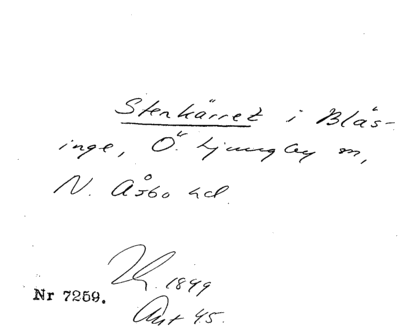 Stenkärret i Blås-
inge, Ö. Ljungby sn,
N. Åsbo hd.
1849
Nr 7259.
Ant 45.